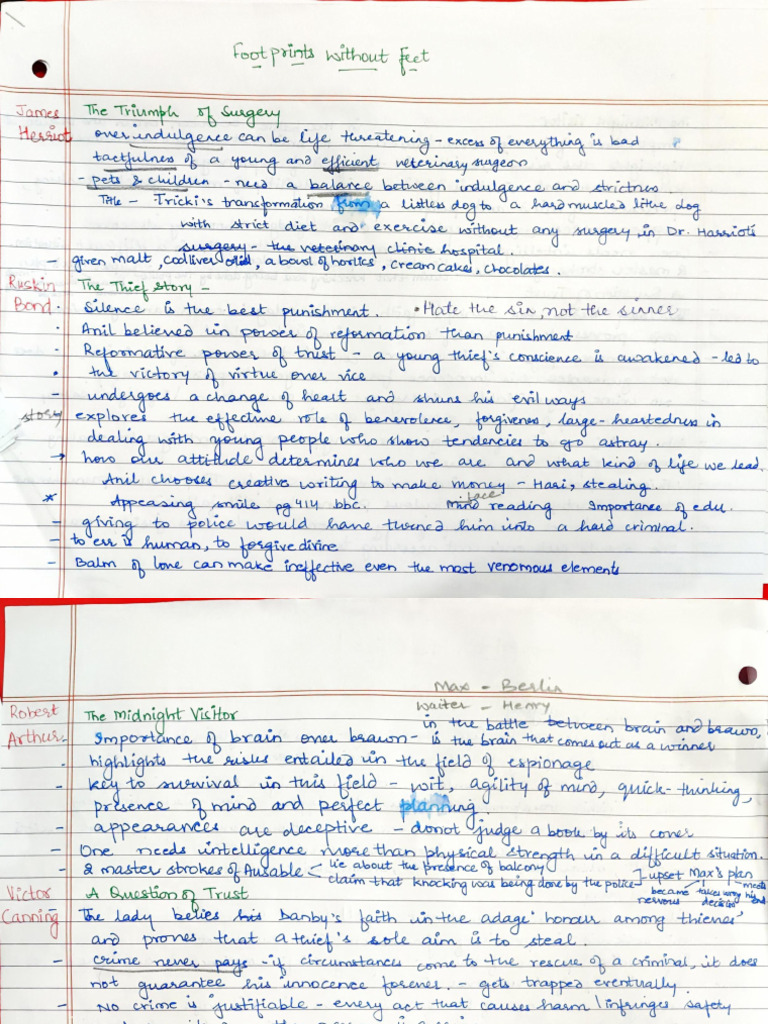 Footprints without feet
James Herriot
The Triumph of Surgery
over indulgence can be life threatening - excess of everything is bad
tactfulness of a young and efficient veterinary surgeon
- pets & children - need a balance between indulgence and strictness.
Title - Tricki's transformation from a listless dog to a hard muscled little dog
with strict diet and exercise without any surgery in Dr. Harriot's
surgery - the veterinary clinic hospital.
- given malt, codliver oil, a bowl of horlics, cream cakes, chocolates.
Ruskin Bond
The Thief Story -
Silence is the best punishment. • Hate the sin, not the sinner
Anil believed in power of reformation than punishment
- Reformative power of trust - a young thief's conscience is awakened - led to
• the victory of virtue over vice
- undergoes a change of heart and shuns his evil ways
story explores the effective role of benevolence, forgiveness, large-heartedness in
dealing with young people who show tendencies to go astray.
→ how our attitude determines who we are and what kind of life we lead.
Anil chooses creative writing to make money - Hari, stealing.
* Appeasing smile pg 414 bbc. face reading Importance of edu.
- giving to police would have turned him into a hard criminal.
- to err is human, to forgive divine
- Balm of love can make ineffective even the most venomous elements
Max - Berlin
waiter - Henry
Robert Arthur
The Midnight Visitor
in the battle between brain and brawn,
Importance of brain over brawn - is the brain that comes out as a winner
highlights the risks entailed in the field of espionage
- key to survival in this field - wit, agility of mind, quick-thinking,
presence of mind and perfect planning
- appearances are deceptive - donot judge a book by its cover
- One needs intelligence more than physical strength in a difficult situation.
- 2 master strokes of Ausable < lie about the presence of balcony
claim that knocking was being done by the police
upset Max's plan
became nervous
takes wrong decision
meets his end
Victor Canning
A Question of Trust
The lady belies his Danby's faith in the adage 'honour among thieves'
and proves that a thief's sole aim is to steal.
- crime never pays - if circumstances come to the rescue of a criminal, it does
not guarantee his innocence forever. - gets trapped eventually.
- No crime is justifiable - every act that causes harm / infringes safety